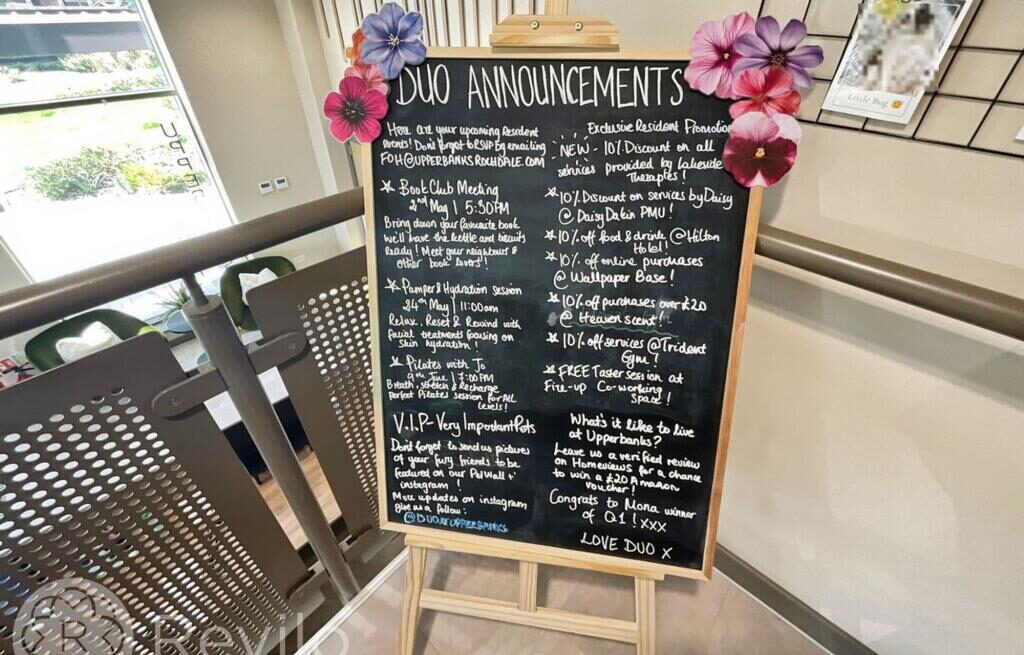 DUO ANNOUNCEMENTS
Here are your upcoming Resident
events! Don't forget to RSVP by emailing
FOH@UPPERBANKSROCHDALE.COM
Book Club Meeting
2nd May | 5:30PM
Bring down your favourite book
we'll have the kettle and biscuits
Ready! Meet your neighbours &
other book lovers!
Pamper & Hydration session
24th May | 11:00am
Relax, Reset & Rewind with
facial treatments focusing on
skin hydration!
Pilates with Jo
9th June | 7:00PM
Breath, stretch & Recharge
Perfect Pilates session for ALL
levels!
V.I.P - Very Important Pets
Don't forget to send us pictures
of your fury friends to be
featured on our Pet Wall +
instagram!
More updates on instagram
give us a follow:
@DUOATUPPERBANKS
Exclusive Resident Promotion
-NEW- 10% Discount on all
services provided by Lakeside
Therapies!
10% Discount on services by Daisy
@ Daisy Dakin PMU!
10% off food & drink @ Hilton
Hotel!
10% off online purchases
@ Wallpaper Base!
10% off purchases over £20
@ Heaven scent!
10% off services @ Trident
Gym!
FREE Taster Session at
Fire-up Co-working
Space!
What's it like to live
at Upperbanks?
Leave us a verified review
on Homeviews for a chance
to win a £20 Amazon
voucher!
Congrats to Mona winner
of Q1! xxx
LOVE DUO X
Little Bug
UPPER
R
Revilo